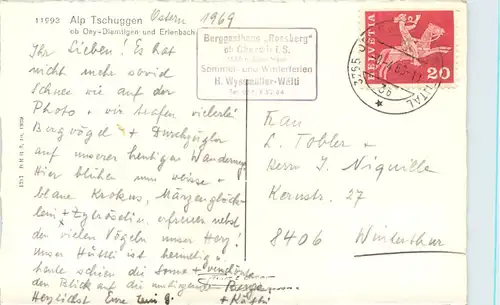 11993 Alp Tschuggen
ob Oey-Diemtigen und Erlenbach
Ostern 1969
Berggasthaus "Rossberg"
ob Oberwil i.S.
Sommer- und Winterferien
H. Wyssmüller-Wälti
HELVETIA
20
3765
Ihr Lieben! Es hat
nicht mehr soviel
Schnee wie auf der
Photo + wir trafen vielerlei
Bergvögel + Durchzügler
auf unserer heutigen Wanderung
Hier blühen nun weisse +
blaue Krokus, Märzenglöck-
lein + erfreuen nebst
den vielen Vögeln unser Herz!
unser Hüttli ist heimelig!
heute schien die Sonne +
den Blick auf die umliegenden Berge
Herzlichst Eure
+ Käthi
Frau
L. Tobler +
Herrn J. Niquille
Kernstr. 27
8406 Winterthur